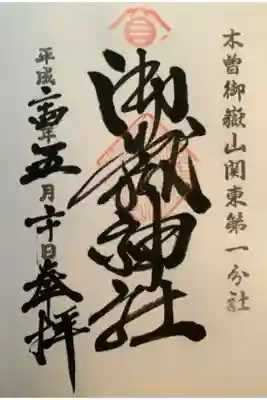 木曽御嶽山関東第一分社
御嶽神社
平成二十四年五月十日奉拝